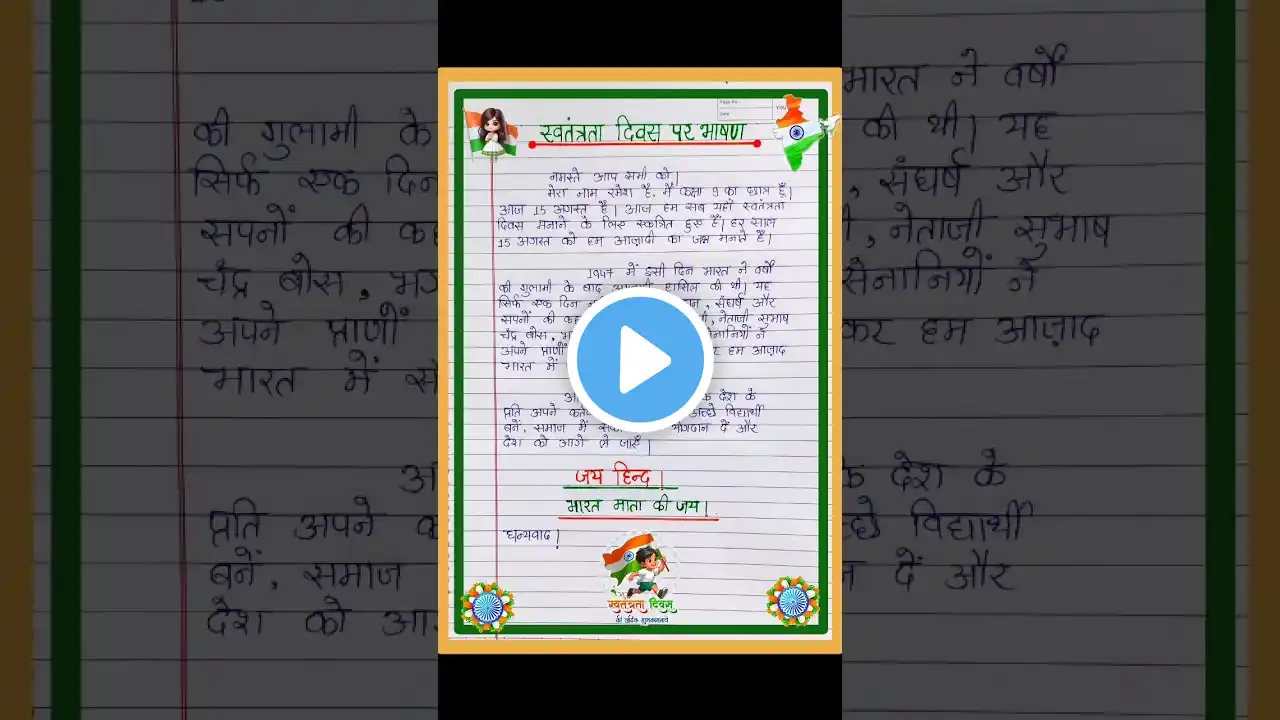 Page No.
Date
स्वतंत्रता दिवस पर भाषण
नमस्ते आप सभी को।
मेरा नाम रमेश है, मैं कक्षा 9 का छात्र हूँ।
आज 15 अगस्त है। आज हम सब यहाँ स्वतंत्रता
दिवस मनाने के लिए एकत्रित हुए हैं। हर साल
15 अगस्त को हम आज़ादी का जश्न मनाते हैं।
1947 में इसी दिन भारत ने वर्षों
की गुलामी के बाद हासिल की थी। यह
सिर्फ एक दिन संघर्ष और
सपनों की नेताजी सुभाष
चंद्र बोस,
अपने प्राणों हम आज़ाद
भारत में
देश के
प्रति अपने विद्यार्थी
बनें, समाज में योगदान दें और
देश को आगे ले जाएँ।
जय हिन्द।
भारत माता की जय।
धन्यवाद।
स्वतंत्रता दिवस
की हार्दिक शुभकामनायें